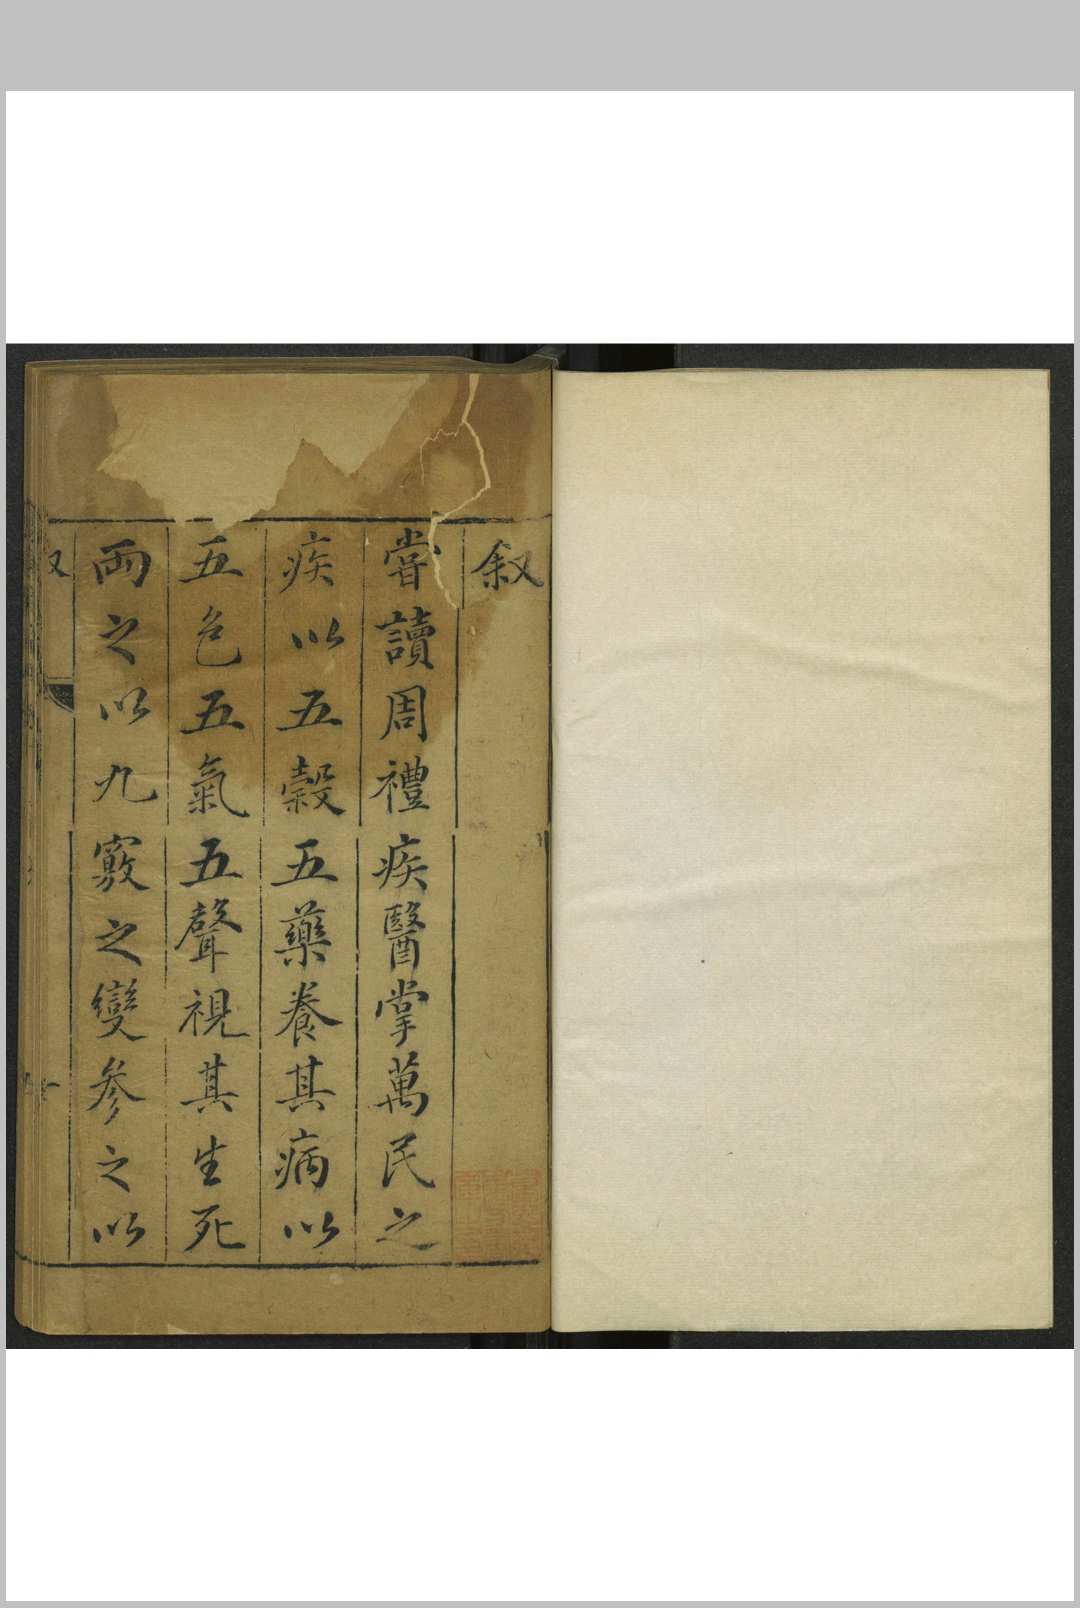 叙
嘗讀周禮疾醫掌萬民之
疾以五穀五藥養其病以
五色五氣五聲視其生死
兩之以九竅之變參之以